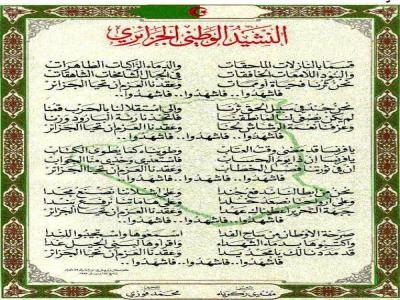 النشيد الوطني الجزائري
قسما بالنازلات الماحقات والدماء الزاكيات الطاهرات
والبنود اللامعات الخافقات في الجبال الشامخات الشاهقات
نحن ثرنا فحياة أو ممات وعقدنا العزم أن تحيا الجزائر
فاشهدوا.. فاشهدوا.. فاشهدوا..
نحن جند في سبيل الحق ثرنا وإلى استقلالنا بالحرب قمنا
لم يكن يصغى لنا لما نطقنا فاتخذنا رنة البارود وزنا
وعزفنا نغمة الرشاش لحنا وعقدنا العزم أن تحيا الجزائر
فاشهدوا.. فاشهدوا.. فاشهدوا..
يا فرنسا قد مضى وقت العتاب وطويناه كما يطوى الكتاب
يا فرنسا إن ذا يوم الحساب فاستعدي وخذي منا الجواب
إن في ثورتنا فصل الخطاب وعقدنا العزم أن تحيا الجزائر
فاشهدوا.. فاشهدوا.. فاشهدوا..
نحن من أبطالنا ندفع جندا وعلى أشلائنا نصنع مجدا
وعلى أرواحنا نصعد خلدا وعلى هاماتنا نرفع بندا
جبهة التحرير أعطيناك عهدا وعقدنا العزم أن تحيا الجزائر
فاشهدوا.. فاشهدوا.. فاشهدوا..
صرخة الأوطان من ساح الفدا اسمعوها واستجيبوا للندا
واكتبوها بدماء الشهداء واقرأوها لبني الجيل غدا
قد مددنا لك يا مجد يدا وعقدنا العزم أن تحيا الجزائر
فاشهدوا.. فاشهدوا.. فاشهدوا..
مفدي زكرياء
محمد فوزي